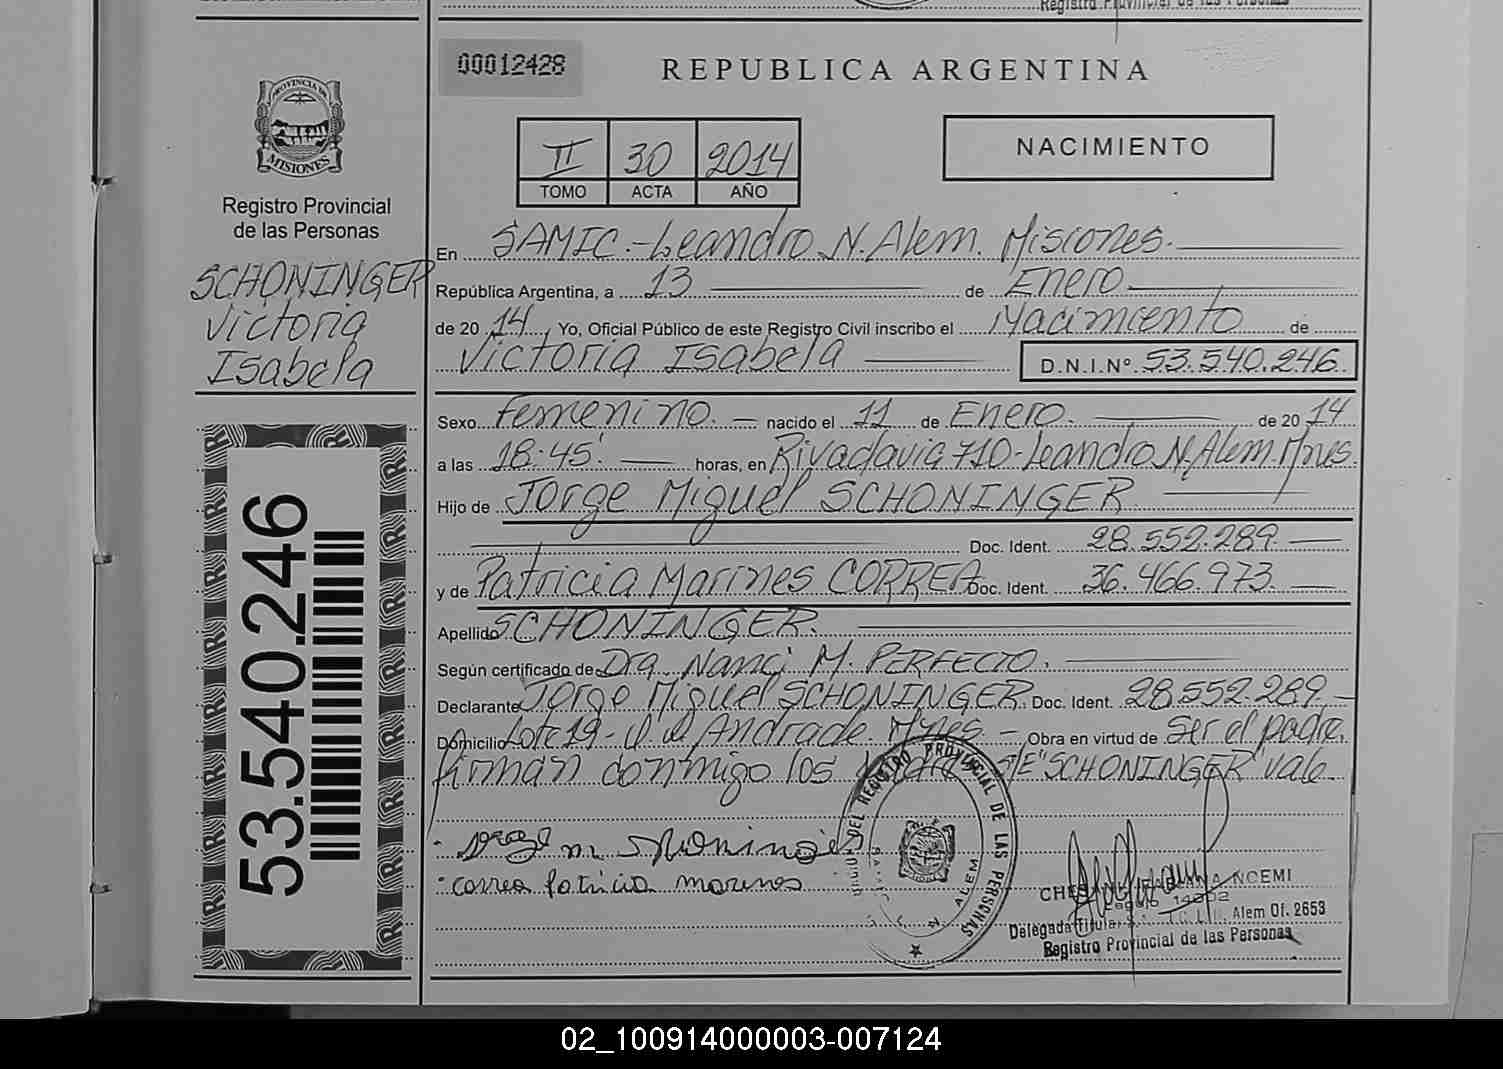 Registro Provincial de las Personas
00012428
REPUBLICA ARGENTINA
PROVINCIA DE
MISIONES
Registro Provincial
de las Personas
SCHONINGER
Victoria
Isabela
53.540.246
II 30 2014
TOMO ACTA AÑO
NACIMIENTO
En SAMIC.-Leandro N. Alem. Misiones.
República Argentina, a 13 de Enero
de 20 14, Yo, Oficial Público de este Registro Civil inscribo el Nacimiento de
Victoria Isabela D.N.I.Nº 53.540.246.
Sexo Femenino. nacido el 11 de Enero. de 20 14
a las 18:45' horas, en Rivadavia 710-Leandro N. Alem. Mnes.
Hijo de Jorge Miguel SCHONINGER
Doc. Ident. 28.552.289.
y de Patricia Marines CORREA Doc. Ident. 36.466.973.
Apellido SCHONINGER.
Según certificado de Dra. Nanci M. PERFECTO.
Declarante Jorge Miguel SCHONINGER Doc. Ident. 28.552.289
Domicilio Lote 19- Andrade. Mnes. - Obra en virtud de Ser el padre.
firman conmigo los "SCHONINGER" vale.
correa Patricia marines
DEL REGISTRO PROVINCIAL DE LAS PERSONAS
N. ALEM
NOEMI
Delegada Titular Alem Of. 2653
Registro Provincial de las Personas
02_100914000003-007124